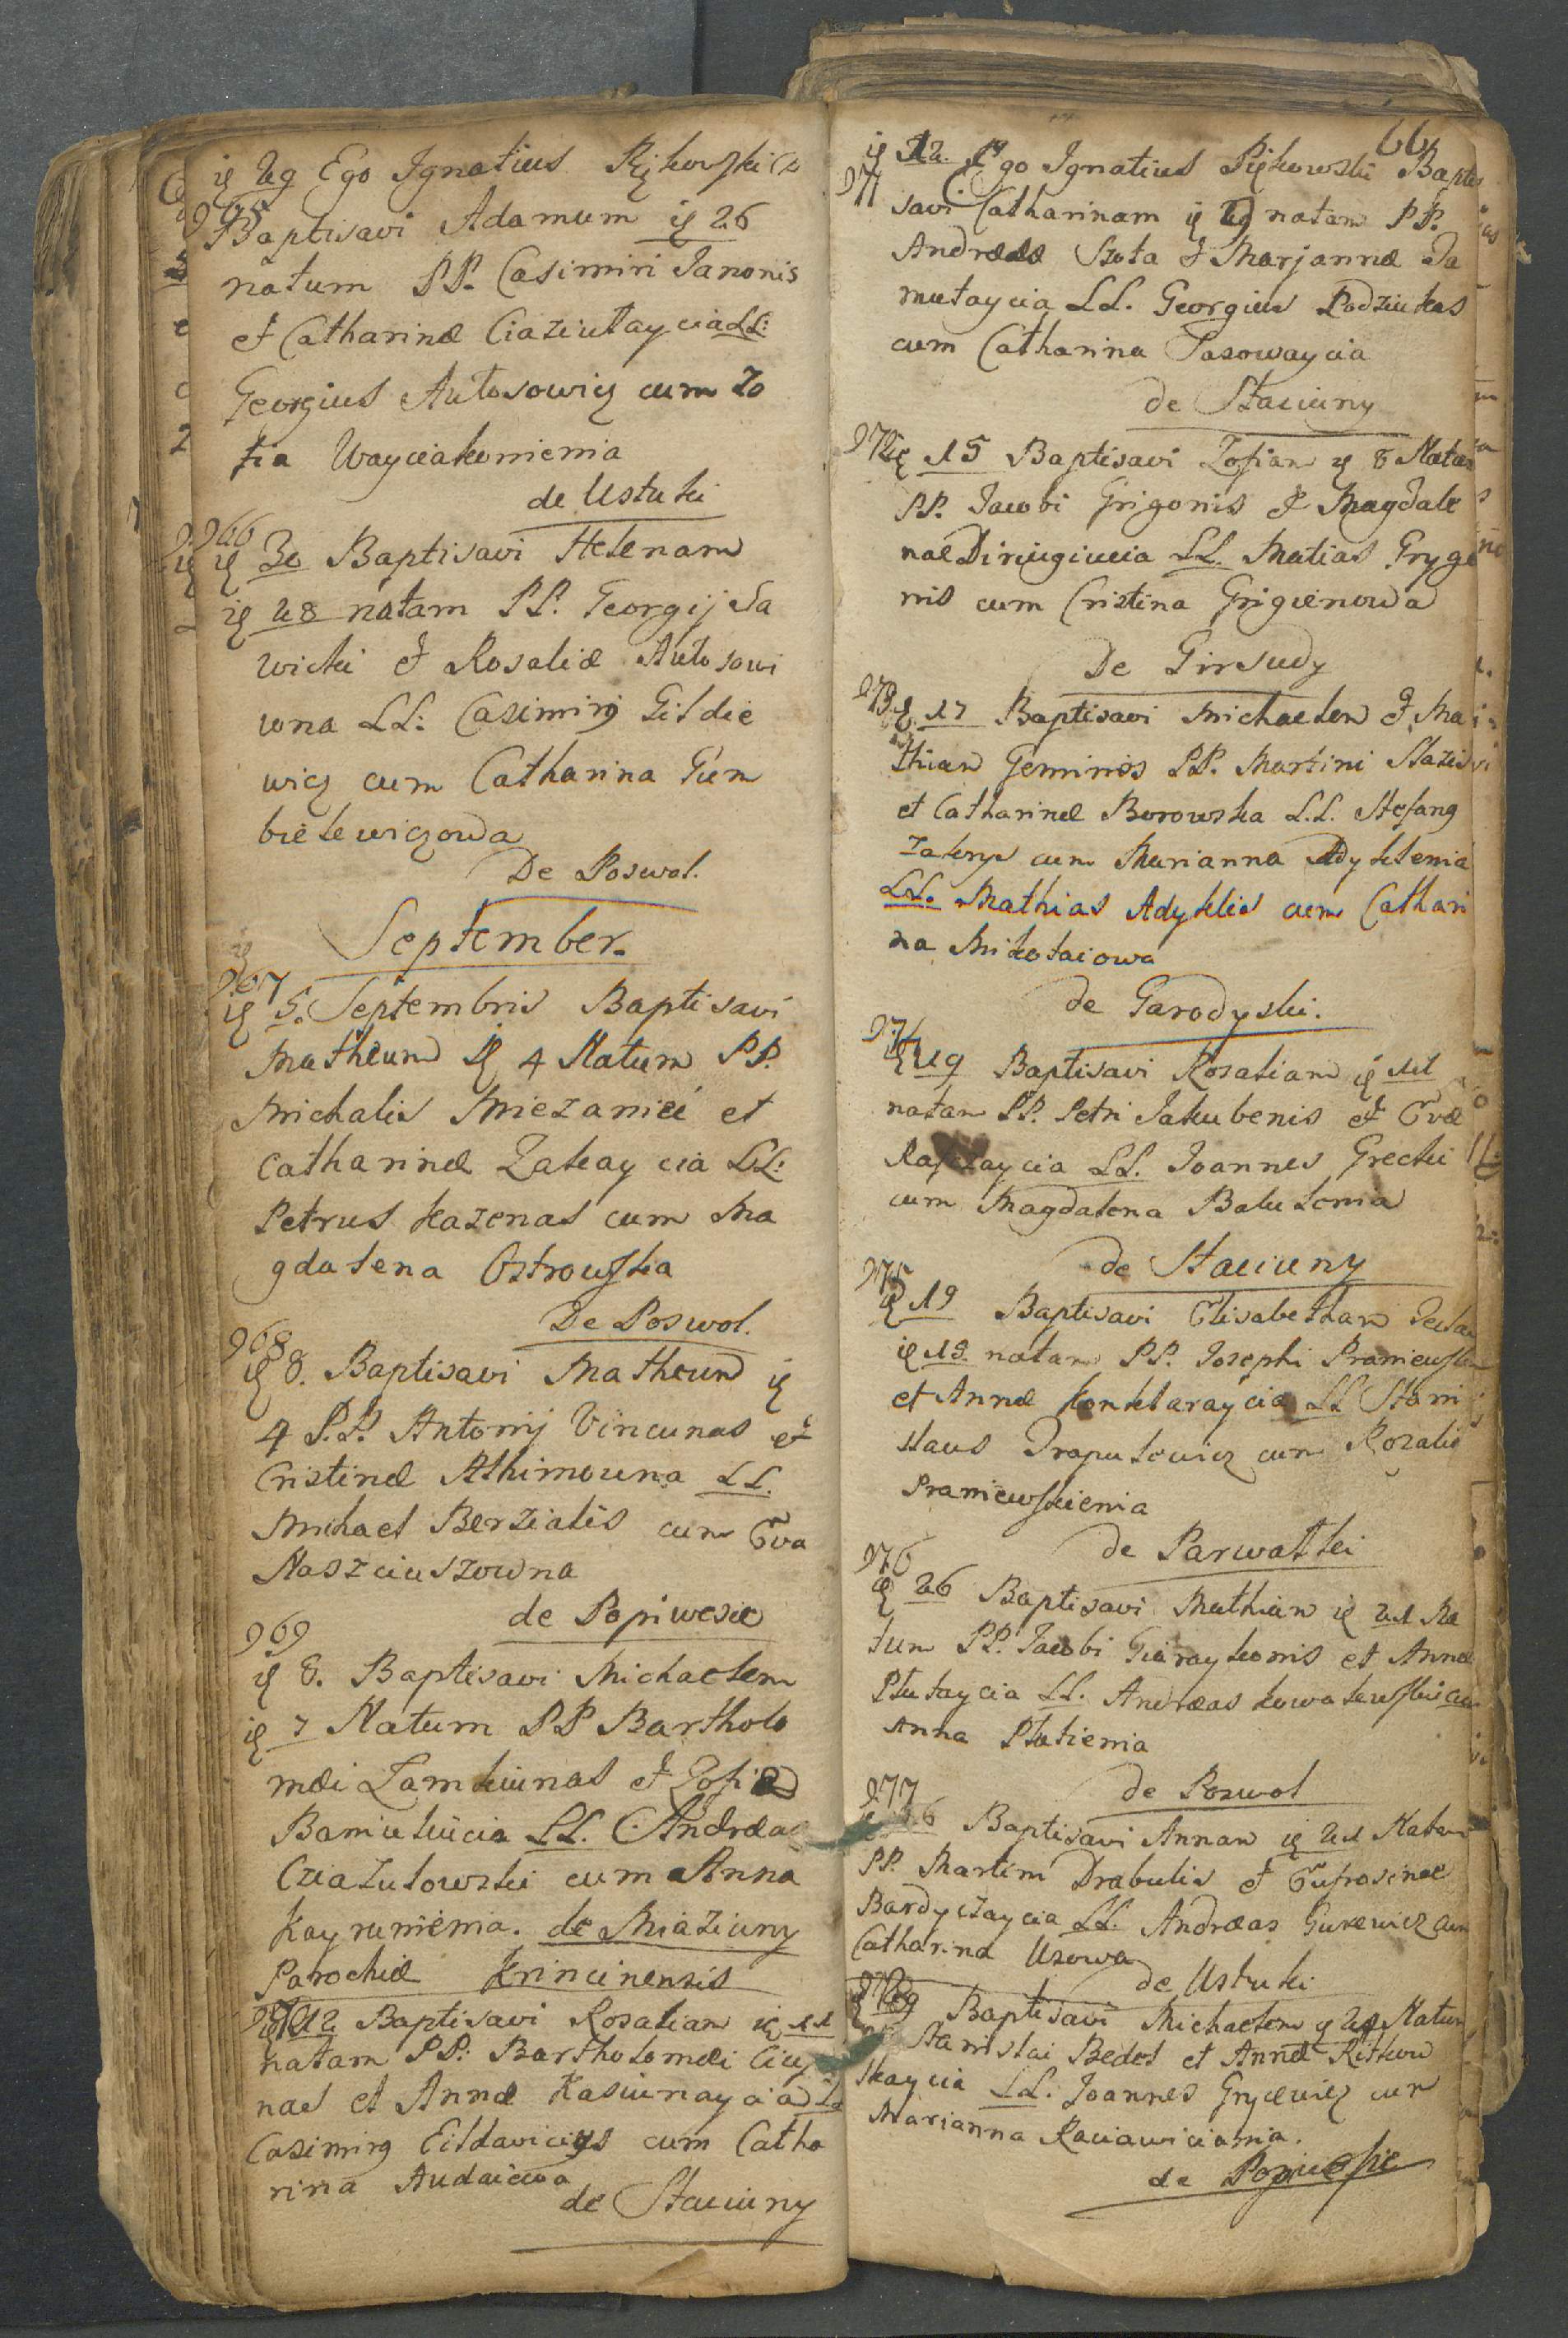 ię 29 Ego Ignatius Piękowski
965
Baptisavi Adamum ię 26
natum PP. Casimiri Janonis
et Catharinæ Ciaziutaycia LL:
Georgius Antosowicz cum Zo
fia Wayciakunienia
de Ustuki
966
ię 30 Baptisavi Helenam
ię 28 natam PP. Georgij Sa
wicki et Rosaliæ Antosowi
wna LL: Casimirg Gildie
wicz cum Catharina Gem
bielewiczowa
De Poswol.
September.
967
ię 5. Septembris Baptisavi
Matheum ię 4 Natum PP.
Michalis Miezanici et
Catharinæ Zakaycia LL:
Petrus Kazenas cum Ma
gdalena Ostrowska
De Poswol.
968
ię 8. Baptisavi Matheum ię
4 P.P. Antonij Vincunas et
Cristinæ Athimowna LL.
Michael Berzialis cum Eva
Naszciuszowna
de Popiwesie
969
ię 8. Baptisavi Michaelem
ię 7 Natum PP Bartholo
mæi Zamkiunas et Zofiæ
Baniukiicia LL. Andræas
Cziazutowski cum Anna
Kayrunienia. de Miaziuny
Parochiæ Krincinensis
ię 12 Baptisavi Rosaliam ię 11
natam PP: Bartholomæi
nas et Annæ Kasiunaycia
Casimirg Gildavicigs cum Catha
rina Audaiewa
de Staciuny
66
ię 12. Ego Ignatius Piękowski Bapti
971
savi Catharinam ię 9 natam PP.
Andreæ Szota et Marjannæ Ja
mutaycia LL. Georgius Podziukas
cum Catharina Jasowaycia
de Staciuny
972
ię 15 Baptisavi Zofiam ię 8 Natam
PP. Jacobi Grigonis et Magdale
nae Dirsiugiucia LL. Matias Grygo
nis cum Cristina Grigienowa
De Girsudy
973
ię 17 Baptisavi Michaelem et Ma
thiam Geminos PP. Martini Stazis
et Catharinæ Borowska L.L. Stefang
Zakrys cum Marianna Adyklenia
LL. Mathias Adyklis cum Cathari
na Mikolaiowa
de Garodyski.
974
ię 19 Baptisavi Rosaliam ię 11
natam PP. Petri Jakubenis et Evæ
LL. Joannes Grecki
cum Magdalena Balulenia
de Staciuny
975
ię 19 Baptisavi Elisabetham Teclam
ię 13 natam PP. Josephi Praniewski
et Annæ Konklaraycia LL Stani
slaus Drapulewicz cum Rozalia
Praniewskienia
de Parwalki
976
ię 26 Baptisavi Mathiam ię 21 Na
tum PP. Jacobi Giaraykonis et Annæ
Plutaycia LL. Andreas Kowalewski cum
Anna Plutienia
de Poswol
977
ię 26 Baptisavi Annam ię 21 Natam
PP. Martini Drabulis et Eufrosinae
Bardyszaycia LL. Andræas Gurewicz cum
Catharina Uzowa
de Ustuki
978
ię 29 Baptisavi Michaelem ię 24 Natum
Stanislai Bedes et Annæ Ritkow
skaycia LL. Joannes Grycewicz cum
Marianna Raciawicienia.
de Popiwesie